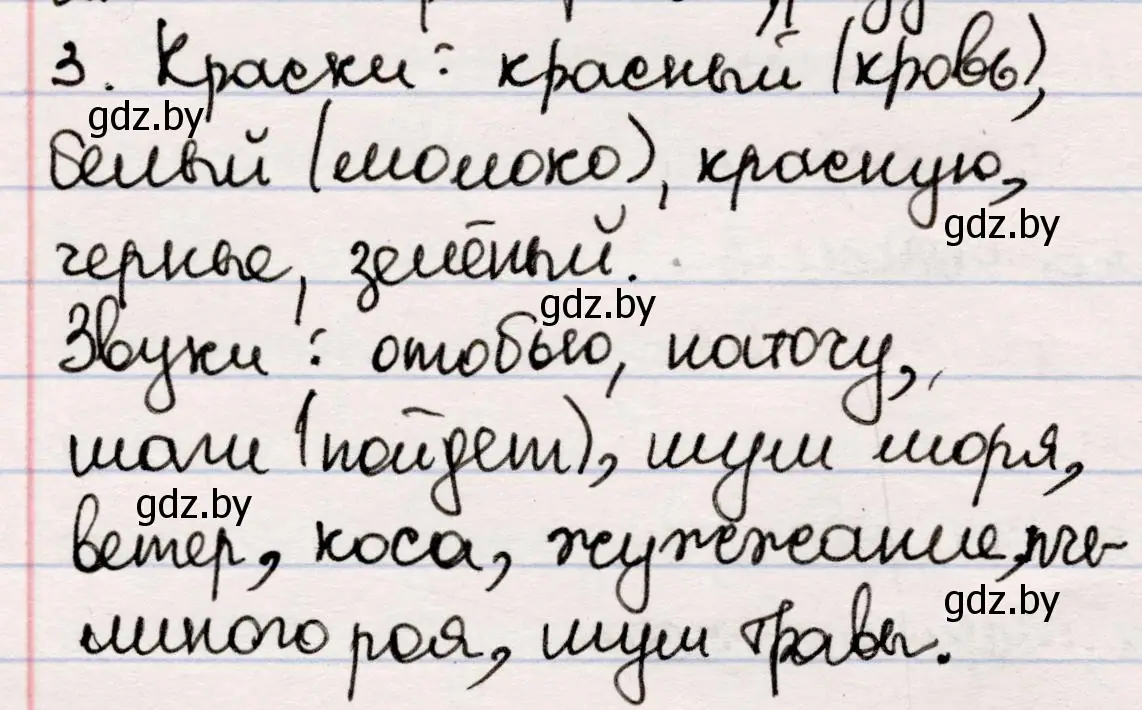 3. Краски: красный (кровь),
gdz.by
белый (молоко), красную,
gdz.by
черные, зелёный.
gdz.by
Звуки: отобью, наточу,
шаги (пойдет), шум моря,
gdz.by
ветер, коса, жужжание, пче-
gdz.by
линого роя, шум травы.